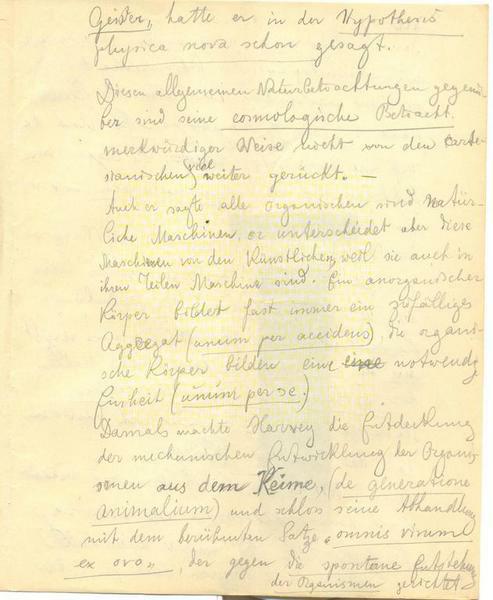 Geister„ hatte er in der Hypothesis
physica nova schon gesagt.
Diesen allgemeinen Naturbetrachtungen gegenü-
ber sind seine cosmologische Betracht.
merkwürdiger Weise nicht von den Carte-
sianischen viel weiter gerückt. —
Auch er sagte alle organischen sind natür-
liche Maschinen, er unterscheidet aber diese
Maschinen von den Künstlichen, weil sie auch in
ihren Teilen Maschine sind. Ein anorganischer
Körper bildet fast immer ein zufälliges
Aggregat (unum per accidens), die organi-
sche Körper bilden eine eine notwendige
Einheit (unum per se.)
Damals machte Harvey die Entdeckung
der mechanischen Entwicklung der Organis-
men aus dem Keime, (de generatione
animalium) und schloss seine Abhandlung
mit dem berühmten Satze „omnis vivum
ex ovo", der gegen die spontane Entstehung
der Organismen gerichtet